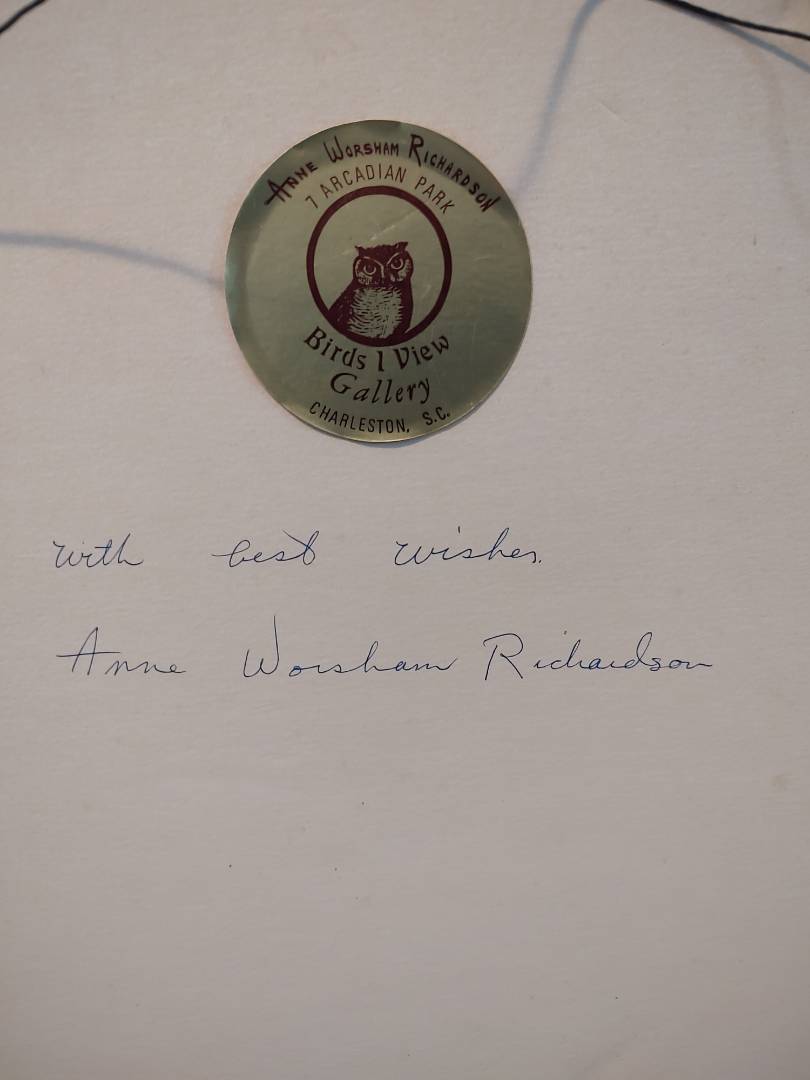 ANNE WORSHAM RICHARDSON
7 ARCADIAN PARK
Birds I View
Gallery
CHARLESTON, S.C.
with best wishes.
Anne Worsham Richardson